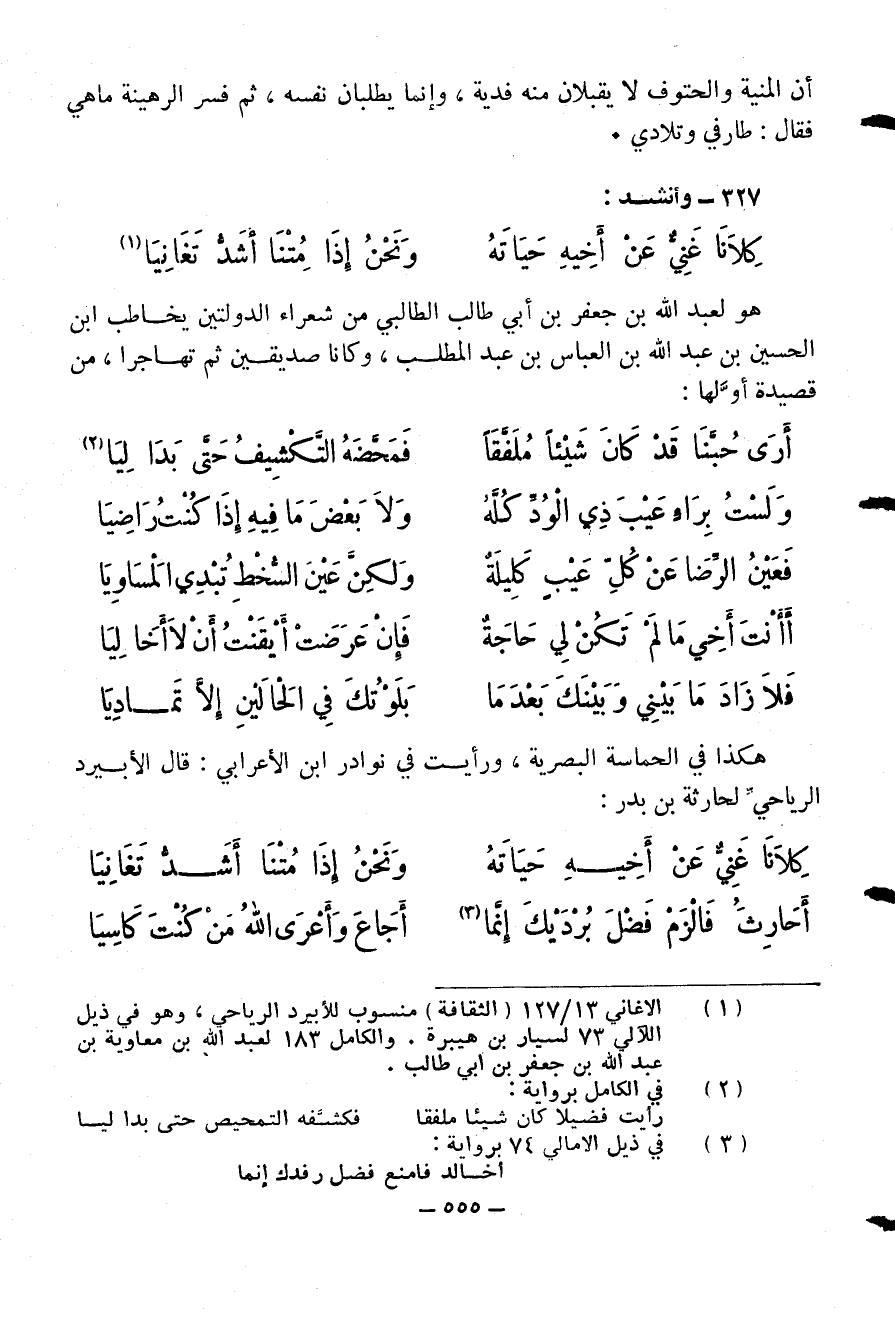 أن المنية والحتوف لا يقبلان منه فدية ، وإنما يطلبان نفسه ، ثم فسر الرهينة ماهي
فقال : طارفي وتلادي •
٣٢٧ – وأنشـــد :
كِلاَنَا غَنِيٌّ عَنْ أَخِيهِ حَيَاتَهُ وَنَحْنُ إِذَا مِتْنَا أَشَدُّ تَغَانِيَا (١)
هو لعبد الله بن جعفر بن أبي طالب الطالبي من شعراء الدولتين يخـــاطب ابن
الحسين بن عبد الله بن العباس بن عبد المطلـــب ، وكانا صديقـــين ثم تهـاجرا ، من
قصيدة أوَّلها :
أَرَى حُبَّنَا قَدْ كَانَ شَيْئاً مُلَفَّقَاً فَمَحَّضَهُ التَّكْشِيفُ حَتَّى بَدَا لِيَا (٢)
وَلَسْتُ بِرَاءِ عَيْبَ ذِي الْوُدِّ كُلَّهُ وَلاَ بَعْضَ مَا فِيهِ إِذَا كُنْتُ رَاضِيَا
فَعَيْنُ الرِّضَا عَنْ كُلِّ عَيْبٍ كَلِيلَةٌ وَلَكِنَّ عَيْنَ السُّخْطِ تُبْدِي الْمَسَاوِيَا
أَأَنْتَ أَخِي مَا لَمْ تَكُنْ لِي حَاجَةٌ فَإِنْ عَرَضَتْ أَيْقَنْتُ أَنْ لاَ أَخَا لِيَا
فَلاَ زَادَ مَا بَيْنِي وَبَيْنَكَ بَعْدَمَا بَلَوْتُكَ فِي الْحَالَيْنِ إِلاَّ تَمَـــادِيَا
هـكذا في الحماسة البصرية ، ورأيـــت في نوادر ابن الأعرابي : قال الأبـيرد
الرياحيّ لحارثة بن بدر :
كِلاَنَا غَنِيٌّ عَنْ أَخِيـــهِ حَيَاتَهُ وَنَحْنُ إِذَا مُتْنَا أَشَـــدُّ تَغَانِيَا
أَحَارِثَ فَالْزَمْ فَضْلَ بُرْدَيْكَ إِنَّمَا (٣) أَجَاعَ وَأَعْرَى اللهُ مَنْ كُنْتَ كَاسِيَا
( ١ ) الاغاني ١٢٧/١٣ ( الثقافة ) منسوب للأبيرد الرياحي ، وهو في ذيل
اللآلي ٧٣ لسيار بن هبيرة . والكامل ١٨٣ لعبد الله بن معاوية بن
عبد الله بن جعفر بن أبي طالب .
( ٢ ) في الكامل برواية :
رأيت فضيلا كان شيئا ملفقا فكشَّفه التمحيص حتى بدا ليـــا
( ٣ ) في ذيل الامالي ٧٤ برواية :
أخـــالد فامنع فضل رفدك إنما
– ٥٥٥ –